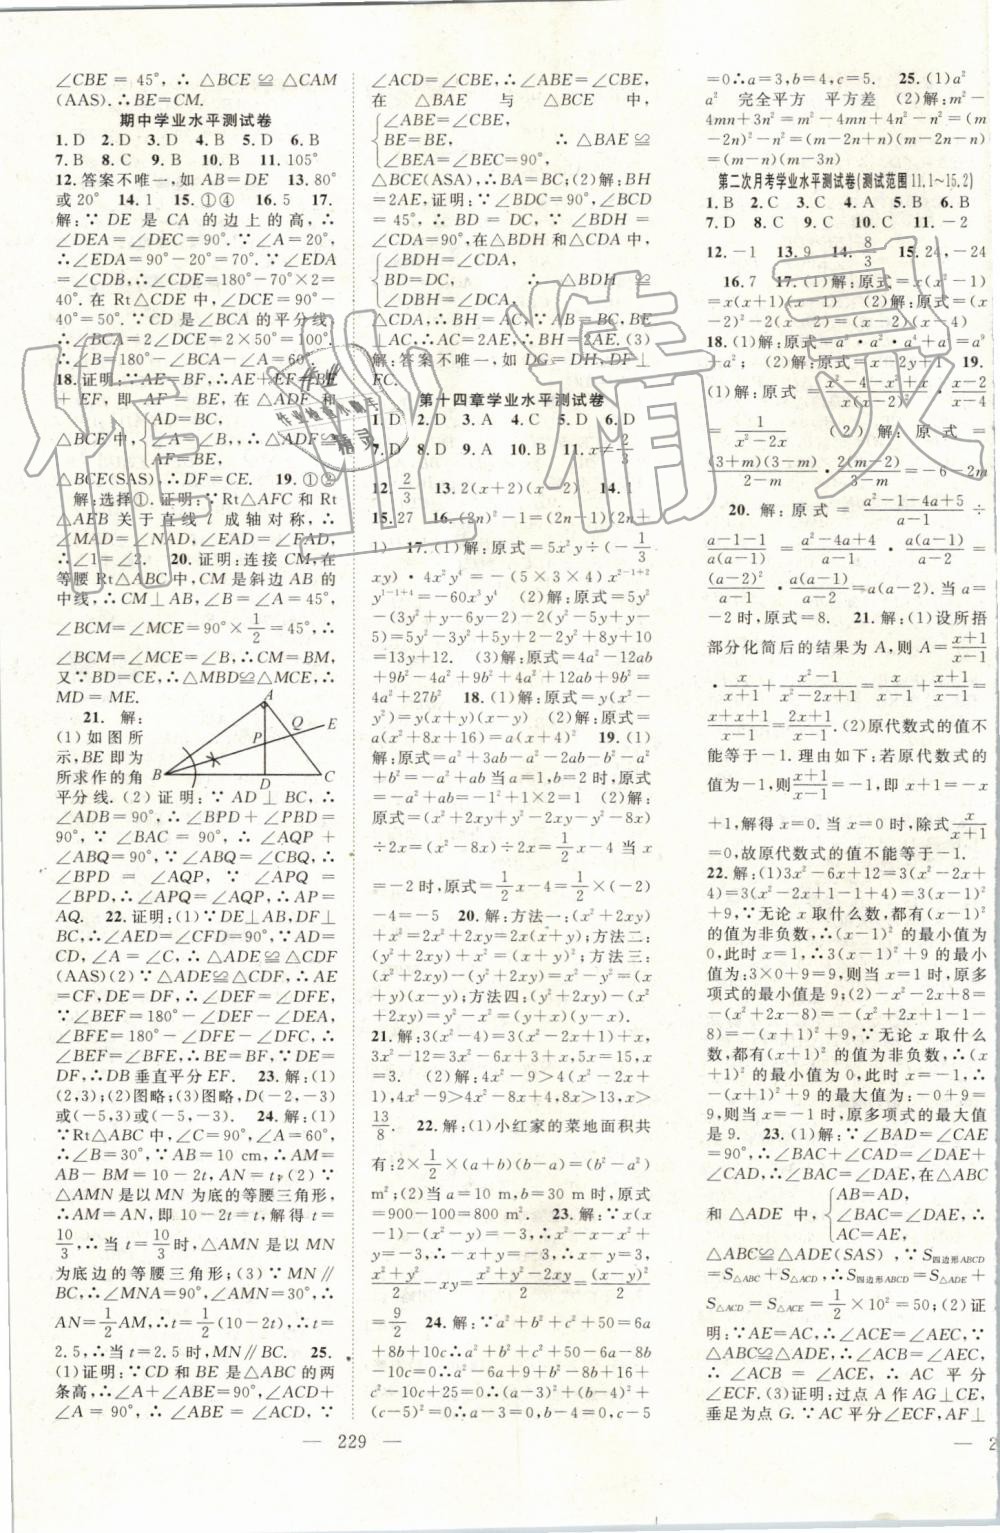 ∠CBE = 45°, ∴ △BCE ≌ △CAM
(AAS). ∴BE=CM.
期中学业水平测试卷
1. D 2. D 3. D 4. B 5. D 6. B
7. B 8. C 9. B 10. B 11. 105°
12. 答案不唯一,如 AB=DE 13. 80°
或20° 14. 1 15. ①④ 16. 5 17.
解:∵ DE 是 CA 的边上的高, ∴
∠DEA=∠DEC=90°. ∵∠A=20°,
∴∠EDA=90°-20°=70°. ∵∠EDA
=∠CDB,∴∠CDE=180°-70°×2=
40°. 在 Rt△CDE 中,∠DCE=90°-
40°=50°. ∵CD 是∠BCA 的平分线,
∴∠BCA=2∠DCE=2×50°=100°.
∴∠B=180°-∠BCA-∠A=60°.
18. 证明:∵AE=BF,∴AE+EF=BF
+EF,即 AF=BE, 在△ADF 和
△BCE中,{AD=BC,
∠A=∠B,
AF=BE,
∴△ADF≌
△BCE(SAS),∴DF=CE. 19. ①②
解:选择①. 证明:∵Rt△AFC 和 Rt
△AEB 关于直线 l 成轴对称,∴
∠MAD=∠NAD,∠EAD=∠FAD,
∴∠1=∠2. 20. 证明:连接 CM,在
等腰 Rt△ABC中,CM 是斜边 AB 的
中线,∴CM⊥AB,∠B=∠A=45°,
∠BCM=∠MCE=90°×1/2=45°,∴
∠BCM=∠MCE=∠B,∴CM=BM,
又∵BD=CE,∴△MBD≌△MCE,∴
MD=ME.
21. 解:
(1)如图所
示,BE即为
所求作的角
平分线. (2)证明:∵ AD⊥BC,∴
∠ADB=90°,∴∠BPD+∠PBD=
90°,∵∠BAC=90°,∴∠AQP+
∠ABQ=90°,∵∠ABQ=∠CBQ,∴
∠BPD=∠AQP,∵∠APQ=
∠BPD,∴∠APQ=∠AQP,∴AP=
AQ. 22. 证明:(1)∵DE⊥AB,DF⊥
BC,∴∠AED=∠CFD=90°,∵AD=
CD,∠A=∠C,∴△ADE≌△CDF
(AAS)(2)∵△ADE≌△CDF,∴AE
=CF,DE=DF,∴∠DEF=∠DFE,
∵∠BEF=180°-∠DEF-∠DEA,
∠BFE=180°-∠DFE-∠DFC,∴
∠BEF=∠BFE,∴BE=BF,∵DE=
DF,∴DB 垂直平分 EF. 23. 解:(1)
(2,3);(2)图略;(3)图略,D(-2,-3)
或(-5,3)或(-5,-3). 24. 解:(1)
∵Rt△ABC 中,∠C=90°,∠A=60°,
∴∠B=30°,∵AB=10 cm,∴AM=
AB-BM=10-2t,AN=t;(2)∵
△AMN 是以 MN 为底的等腰三角形,
∴AM=AN,即 10-2t=t,解得 t=
10/3,∴当 t=10/3时,△AMN 是以 MN
为底边的等腰三角形;(3)∵MN∥
BC,∴∠MNA=90°,∠AMN=30°,∴
AN=1/2AM,∴t=1/2(10-2t),∴t=
2.5,∴当 t=2.5 时,MN∥BC. 25.
(1)证明:∵CD 和 BE 是△ABC 的两
条高,∴∠A+∠ABE=90°,∠ACD+
∠A=90°,∴∠ABE=∠ACD,∵
A
Q
E
P
B
D
C
∠ACD=∠CBE,∴∠ABE=∠CBE,
在 △BAE 与 △BCE 中,
{∠ABE=∠CBE,
BE=BE,
∠BEA=∠BEC=90°,
∴△BAE≌
△BCE(ASA),∴BD=BC;(2)解:BH=
2AE,证明:∵∠BDC=90°,∠BCD
=45°,∴BD=DC,∵∠BDH=
∠CDA=90°,在△BDH和△CDA中,
{∠BDH=∠CDA,
BD=CD,
∠DBH=∠DCA,
∴△BDH≌
△CDA,∴BH=AC,∵AB=BC,BE
⊥AC,∴AC=2AE,∴BH=2AE. (3)
解:答案不唯一,如 DG=DH,DF=
FC.
第十四章学业水平测试卷
1. D 2. D 3. A 4. C 5. D 6. D
7. D 8. D 9. A 10. B 11. x≠2/3
12. 2/3 13. 2(x+2)(x-2) 14. 1
15. 27 16. (2n)²-1=(2n-1)(2n+
1) 17. (1)解:原式=5x²y÷(-1/3
xy)·4x²y⁴=-(5×3×4)x²⁻¹⁺²
y¹⁻¹⁺⁴=-60x³y⁴ (2)解:原式=5y²
-(3y²+y-6y-2)-2(y²-5y+y-5)
=5y²-3y²+5y+2-2y²+8y+10
=13y+12. (3)解:原式=4a²-12ab
+9b²-4a²+9b²+4a²+12ab+9b²=
4a²+27b² 18. (1)解:原式=y(x²-
y²)=y(x+y)(x-y) (2)解:原式=
a(x²+8x+16)=a(x+4)² 19. (1)
解:原式=a²-2ab-a²+2ab-b²-a²
+b²=-a²+ab 当 a=1,b=2 时,原式
=-a²+ab=-1²+1×2=1 (2)解:
原式=(x²+2xy+y²-2xy-y²-8x)
÷2x=(x²-8x)÷2x=1/2x-4 当 x
=-2时,原式=1/2x-4=1/2×(-2)
-4=-5 20. 解:方法一:(x²+2xy)
+x²=2x²+2xy=2x(x+y);方法二:
(y²+2xy)+x²=(x+y)²;方法三:
(x²+2xy)-(y²+2xy)=x²-y²=(x
+y)(x-y);方法四:(y²+2xy)-(x²
+2xy)=y²-x²=(y+x)(y-x).
21. 解:3(x²-4)=3(x²-2x+1)+x,
3x²-12=3x²-6x+3+x,5x=15,x
=3. (2)解:4x²-9>4(x²-2x+
1),4x²-9>4x²-8x+4,8x>13,x>
13/8. 22. 解:(1)小红家的菜地面积共
有:2×1/2×(a+b)(b-a)=(b²-a²)
m²;(2)当 a=10 m,b=30 m 时,原式
=900-100=800 m². 23. 解:∵x(x
-1)-(x²-y)=-3,∴x²-x-x²+
y=-3,∴-x+y=-3,∴x-y=3,∴
(x²+y²)/2-xy=(x²+y²-2xy)/2=(x-y)²/2=
9/2 24. 解:∵a²+b²+c²+50=6a
+8b+10c∴a²+b²+c²+50-6a-8b
-10c=0∴a²-6a+9+b²-8b+16+
c²-10c+25=0∴(a-3)²+(b-4)²+
(c-5)²=0∴a-3=0,b-4=0,c-5
— 229 —
=0∴a=3,b=4,c=5. 25. (1)a²
a² 完全平方 平方差 (2)解:m²-
4mn+3n²=m²-4mn+4n²-n²=(m
-2n)²-n²=(m-2n+n)(m-2n-
n)=(m-n)(m-3n)
第二次月考学业水平测试卷(测试范围11.1~15.2)
1. B 2. C 3. C 4. A 5. B 6. B
7. D 8. C 9. D 10. C 11. -2
12. -1 13. 9 14. 8/3 15. 24,-24
16. 7 17. (1)解:原式=x(x²-1)
=x(x+1)(x-1) (2)解:原式=(x
-2)²-2(x-2)=(x-2)(x-4)
18. (1)解:原式=a³·a²·a⁴+a⁹=a⁹
+a²; (2)解:原式=x-2y+1 19.
x-2
x-4
(2)解:原式=
(3+m)(3-m)/(2-m)·2(m-2)/(3-m)=-6-2m
20. 解:原式=(a²-1-4a+5)/(a-1)÷
(a-1-1)/(a(a-1))=(a²-4a+4)/(a-1)·a(a-1)/(a-2)
=(a-2)²/(a-1)·a(a-1)/(a-2)=a(a-2). 当 a=
-2时,原式=8. 21. 解:(1)设所捂
部分化简后的结果为 A,则 A=(x+1)/(x-1)
·x/(x+1)+(x²-1)/(x²-2x+1)=x/(x-1)+(x+1)/(x-1)=
(x+x+1)/(x-1)=(2x+1)/(x-1). (2)原代数式的值不
能等于-1. 理由如下:若原代数式的
值为-1,则(x+1)/(x-1)=-1,即 x+1=-x
+1,解得 x=0. 当 x=0时,除式x/(x+1)
=0,故原代数式的值不能等于-1.
22. 解:(1)3x²-6x+12=3(x²-2x+
4)=3(x²-2x+1-1+4)=3(x-1)²
+9,∵无论 x 取什么数,都有(x-1)²
的值为非负数,∴(x-1)² 的最小值为
0,此时 x=1,∴3(x-1)²+9 的最小
值为:3×0+9=9,则当 x=1时,原多
项式的最小值是9;(2)-x²-2x+8=
-(x²+2x-8)=-(x²+2x+1-1-
8)=-(x+1)²+9,∵无论 x 取什么
数,都有(x+1)² 的值为非负数,∴(x
+1)² 的最小值为0,此时 x=-1,∴
-(x+1)²+9 的最大值为:-0+9=
9,则当 x=-1时,原多项式的最大值
是9. 23. (1)解:∵∠BAD=∠CAE
=90°,∴∠BAC+∠CAD=∠EAD+
∠CAD,∴∠BAC=∠DAE,在△ABC
和△ADE 中,{AB=AD,
∠BAC=∠DAE,
AC=AE,
∴
△ABC≌△ADE(SAS),∵S四边形ABCD
=S△ABC+S△ACD,∴S四边形ABCD=S△ADE+
S△ACD=S△ACE=1/2×10²=50;(2)证
明:∵AE=AC,∴∠ACE=∠AEC,∵
△ABC≌△ADE,∴∠ACB=
∠AEC,∴∠ACB=∠ACE,∴AC 平分
∠ECF. (3)证明:过点 A 作 AG⊥CE,
垂足为点 G. ∵AC 平分∠ECF,AF⊥
— 2
作业精灵